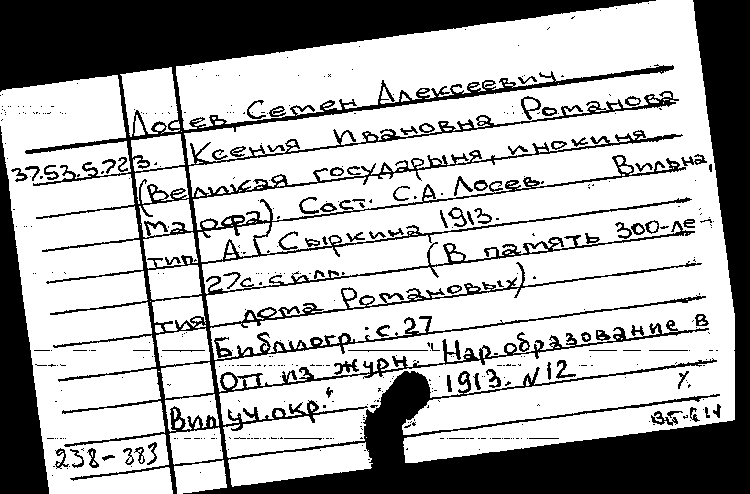 Лосев, Семен Алексеевич.
37.53.5.723. Ксения Ивановна Романова
(Великая государыня, инокиня
Марфа). Сост. С.А. Лосев. Вильна,
тип. А.Г. Сыркина, 1913.
27с. с илл. (В память 300-ле-
тия дома Романовых).
Библиогр.: с.27
Отт. из журн. "Нар. образование в
Вил. уч. окр." 1913. N12
238-383